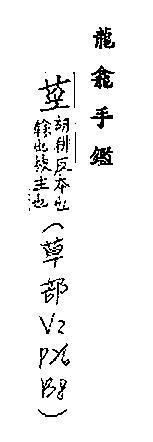 龍龕手鑑
莖
胡耕反本也
也枝主也
(草部
V2
B8)